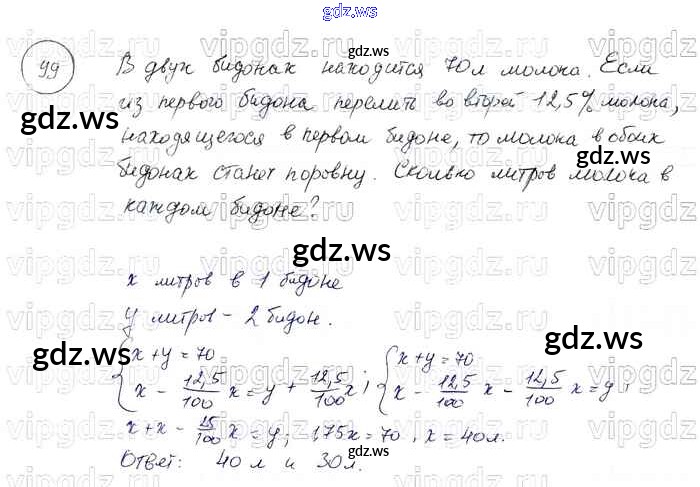 gdz.ws
99
В двух бидонах находится 70л молока. Если
из первого бидона перелить во второй 12,5% молока,
находящегося в первом бидоне, то молока в обоих
бидонах станет поровну. Сколько литров молока в
каждом бидоне?
gdz.ws
x литров в 1 бидоне
y литров - 2 бидон.
{ x + y = 70
x - 12,5/100 x = y + 12,5/100 x ;
{ x + y = 70
x - 12,5/100 x - 12,5/100 x = y ;
x + x - 25/100 x = y ; 1,75x = 70, x = 40л.
Ответ: 40 л и 30л.
gdz.ws